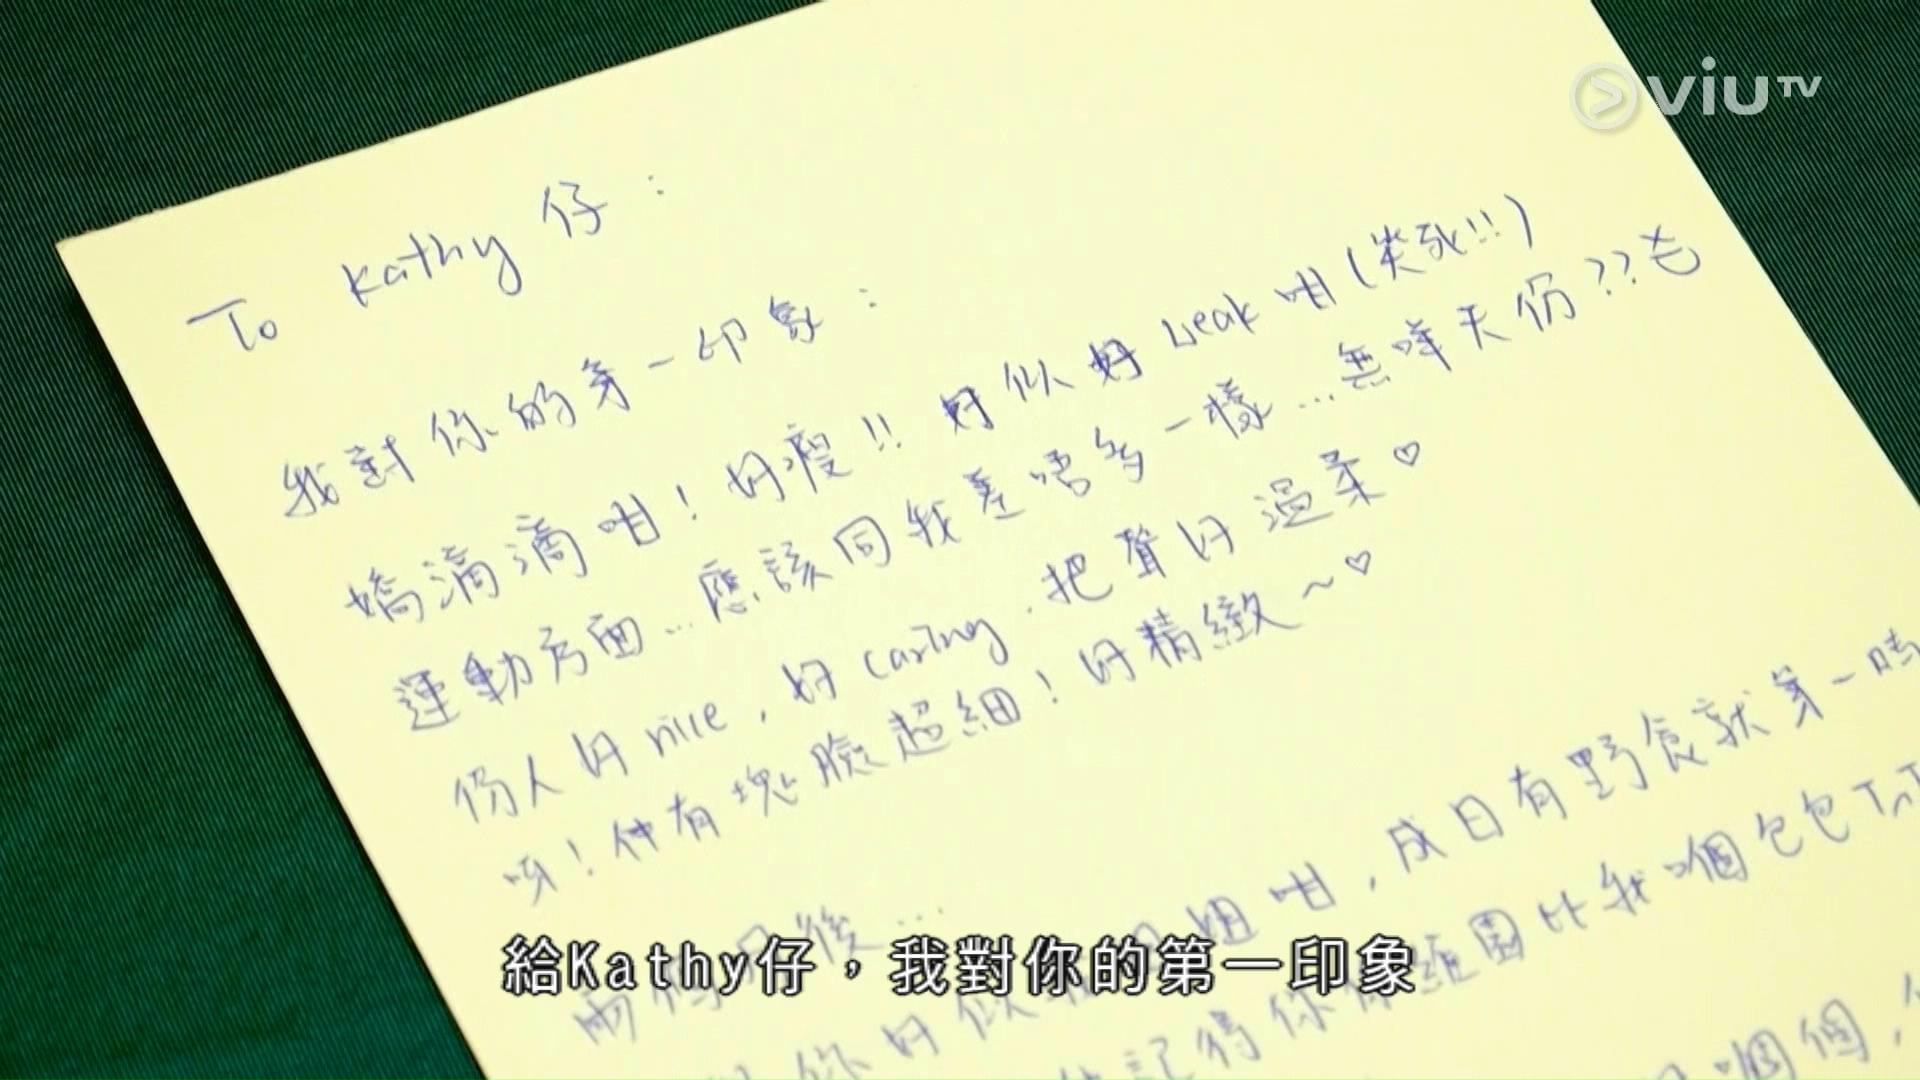 viuTV
To Kathy仔：
我對你的第一印象：
嬌滴滴咁！好瘦!! 好似好weak咁(笑死!!)
運動方面...應該同我差唔多一樣...無咩天份??
份人好nice，好caring，把聲好溫柔♡
呀！仲有塊臉超細！好精緻~♡
兩個月後...
咁，成日有野食就第一時
你好似
記得你
圍比我嗰個包包TnT
嗰個，
給Kathy仔，我對你的第一印象